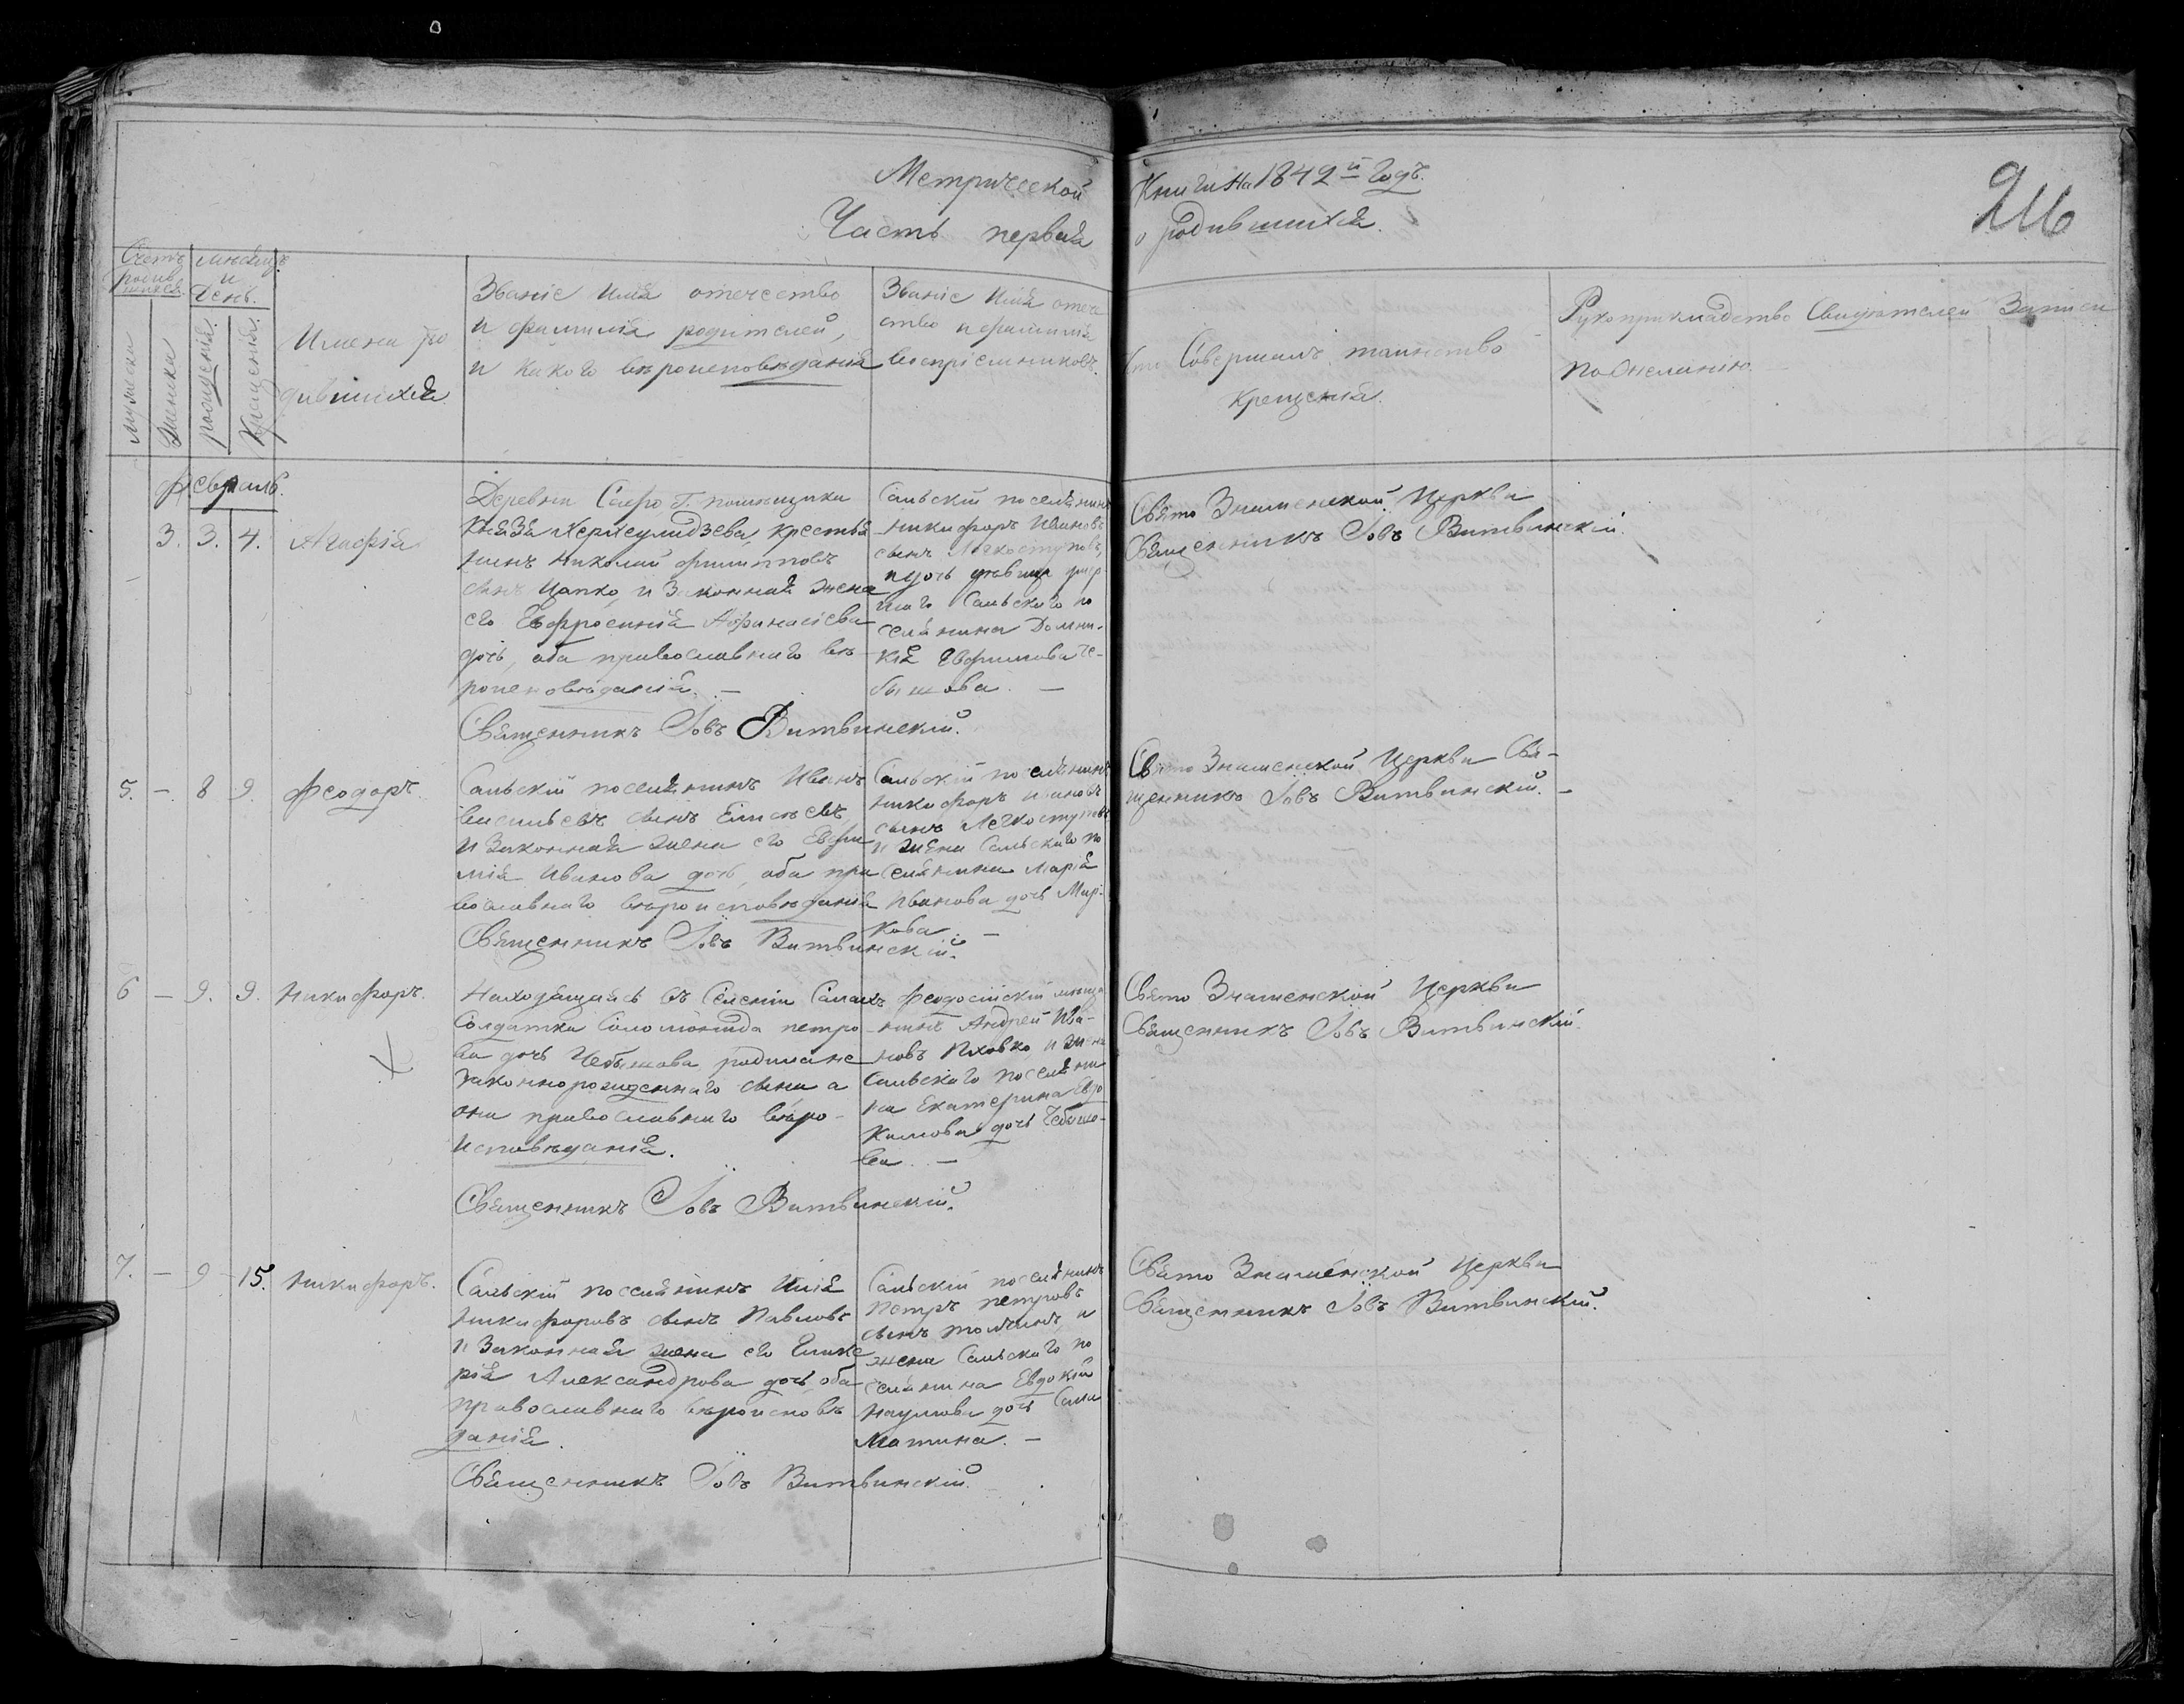 Метрической Книги на 1842й годъ.
Часть первая о родившихся.
216
Счетъ родившихся.
мужеска
женска
месяцъ и День.
рождения.
Крещения.
Имена ро
дившихся
Званіе Имя отечество
и фамилія родителей,
и какого вѣроисповѣданія
Званіе Имя отече
ство и фамилія
воспріемниковъ.
Кто Совершалъ таинство
крещенія.
Рукоприкладство Свидѣтелей Записи
по желанію.
февраль.
3. 3. 4. Агафія
Деревни помѣщика
Князя Херхеулидзева, крестья
нинъ Николай филипповъ
сынъ Цапко, и Законная жена
его Евфросинія Афанасіева
дочь, оба православнаго вѣ-
роисповѣданія. —
Священникъ Іовъ Витвинскій.
Сальскій поселянинъ
никифоръ Ивановъ
сынъ Легкоступовъ,
и дочь девица умер
шаго Сальскаго по
селянина Домни-
кія Евфимова Че-
бышова. —
Свято Знаменской Церкви
Священникъ Іовъ Витвинскій.
5. — 8 9. феодоръ.
Сальскій поселянинъ Иванъ
васильевъ сынъ Елисѣевъ,
и Законная жена его Евфи
мія Иванова дочь, оба пра
вославнаго вѣроисповѣданія
Священникъ Іовъ Витвинскій.
Сальскій поселянинъ
никифоръ ивановъ
сынъ Легкоступовъ
и жена Сальскаго по
селянина Марія
Иванова дочь Мар-
кова. —
Свято Знаменской Церкви Свя-
щенникъ Іовъ Витвинскій. —
6 — 9. 9. Никифоръ.
Находящаяся въ Селеніи Салахъ
Солдатка Соломонида петро-
ва дочь Чебышова родила не
законнорожденнаго сына, а
она православнаго вѣро-
исповѣданія.
Священникъ Іовъ Витвинскій.
феодосійскій мѣща
нинъ Андрей Ива-
новъ Пховко, и жена
Сальскаго поселяни
на Екатерина Евдо
кимова дочь Чебышо-
ва. —
Свято Знаменской Церкви
Священникъ Іовъ Витвинскій.
7. — 9 15. никифоръ.
Сальскій поселянинъ Илія
никифоровъ сынъ Павловъ
и Законная жена его Глике
рія Александрова дочь, оба
православнаго вѣроисповѣ
данія.
Священникъ Іовъ Витвинскій.
Сальскій поселянинъ
Петръ петровъ
сынъ и
жена Сальскаго по
селянина Евдокія
Наумова дочь Сала
матина. —
Свято Знаменской Церкви
Священникъ Іовъ Витвинскій.